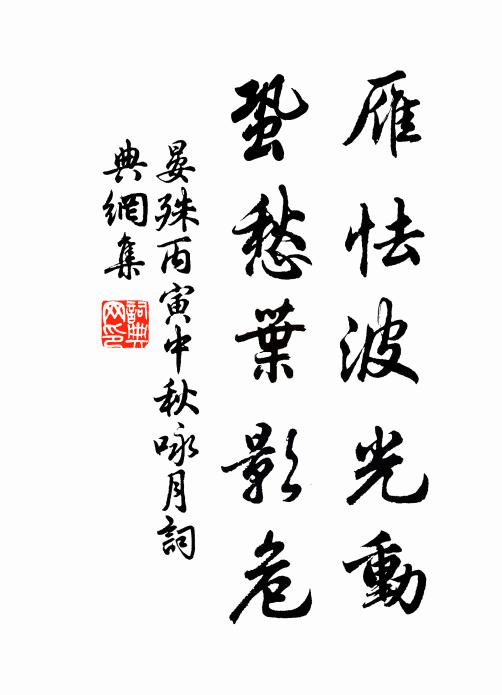 雁怯波光動
蛩愁葉影危
晏殊丙寅中秋咏月詞
典網集
詞典網印